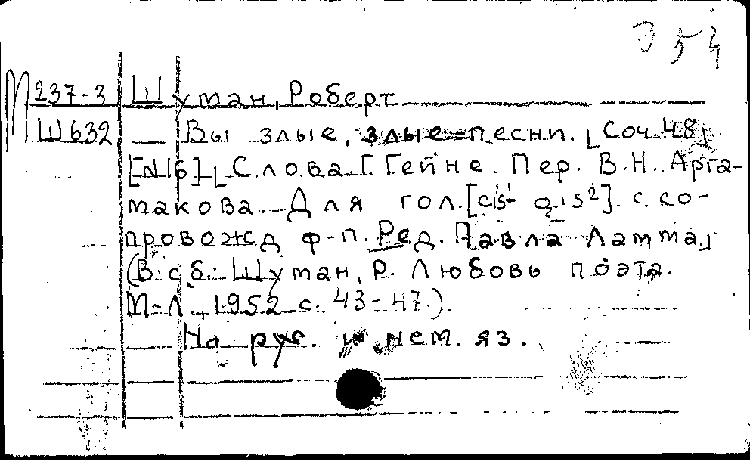 Э 54
М 237-3 Шуман, Роберт
Ш632 — Вы злые, злые песни. [Соч. 48,
[№16] [Слова Г. Гейне. Пер. В.Н. Арга-
макова. Для гол. [cis¹- gis²]. с со-
провожд ф-п. Ред. Павла Ламма]
(В сб.: Шуман, Р. Любовь поэта.
М-Л. 1952 с. 43-47.).
На рус. и нем. яз.